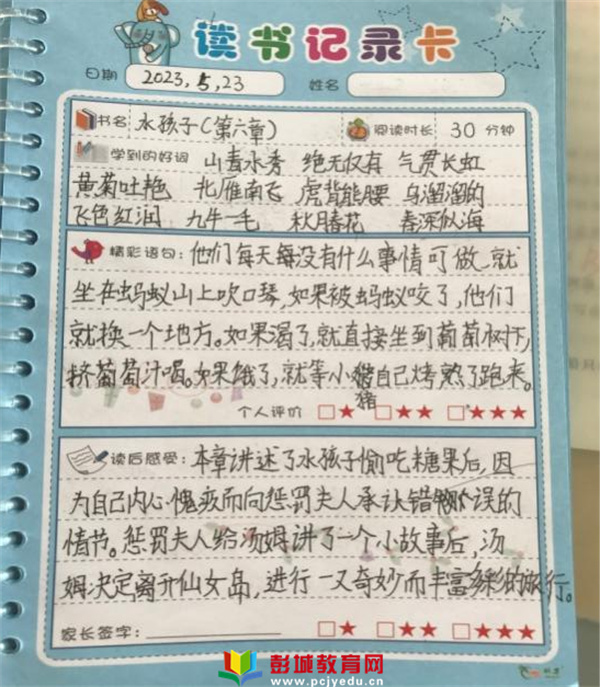 读书记录卡
日期 2023,5,23 姓名
书名 水孩子(第六章) 阅读时长 30 分钟
学到的好词 山青水秀 绝无仅有 气贯长虹
黄菊吐艳 北雁南飞 虎背熊腰 乌溜溜的
飞色红润 九牛一毛 秋月春花 春深似海
精彩语句: 他们每天每没有什么事情可做、就
坐在蚂蚁山上吹口琴,如果被蚂蚁咬了,他们
就换一个地方。如果渴了,就直接坐到葡萄树下,
挤葡萄汁喝。如果饿了,就等小猪自己烤熟了跑来。
猪
个人评价 □★ □★★ □★★★
读后感受: 本章讲述了水孩子偷吃糖果后,因
为自己内心愧疚而向惩罚夫人承认错误的
情节。惩罚夫人给汤姆讲了一个小故事后,汤
姆决定离开仙女岛,进行一又奇妙而丰富多彩的旅行。
家长签字: □★ □★★ □★★★
彭城教育网
www.pcjyedu.cn